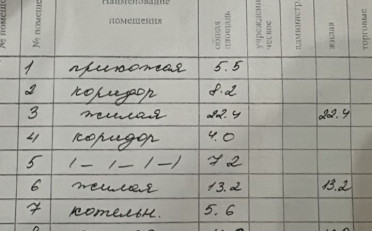 № помеще
Наименование помещения
общая площадь
учрежденческое
административ
жилая
торговые
1 прихожая 5.5
2 коридор 8.2
3 жилая 22.4 22.4
4 коридор 4.0
5 1 – 1 – 1 – 1 7 2
6 жилая 13.2 13.2
7 котельн. 5.6